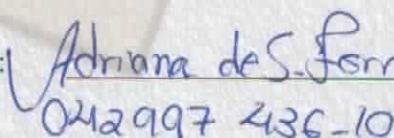 : Adriana de S. Ferr
042997 436-10